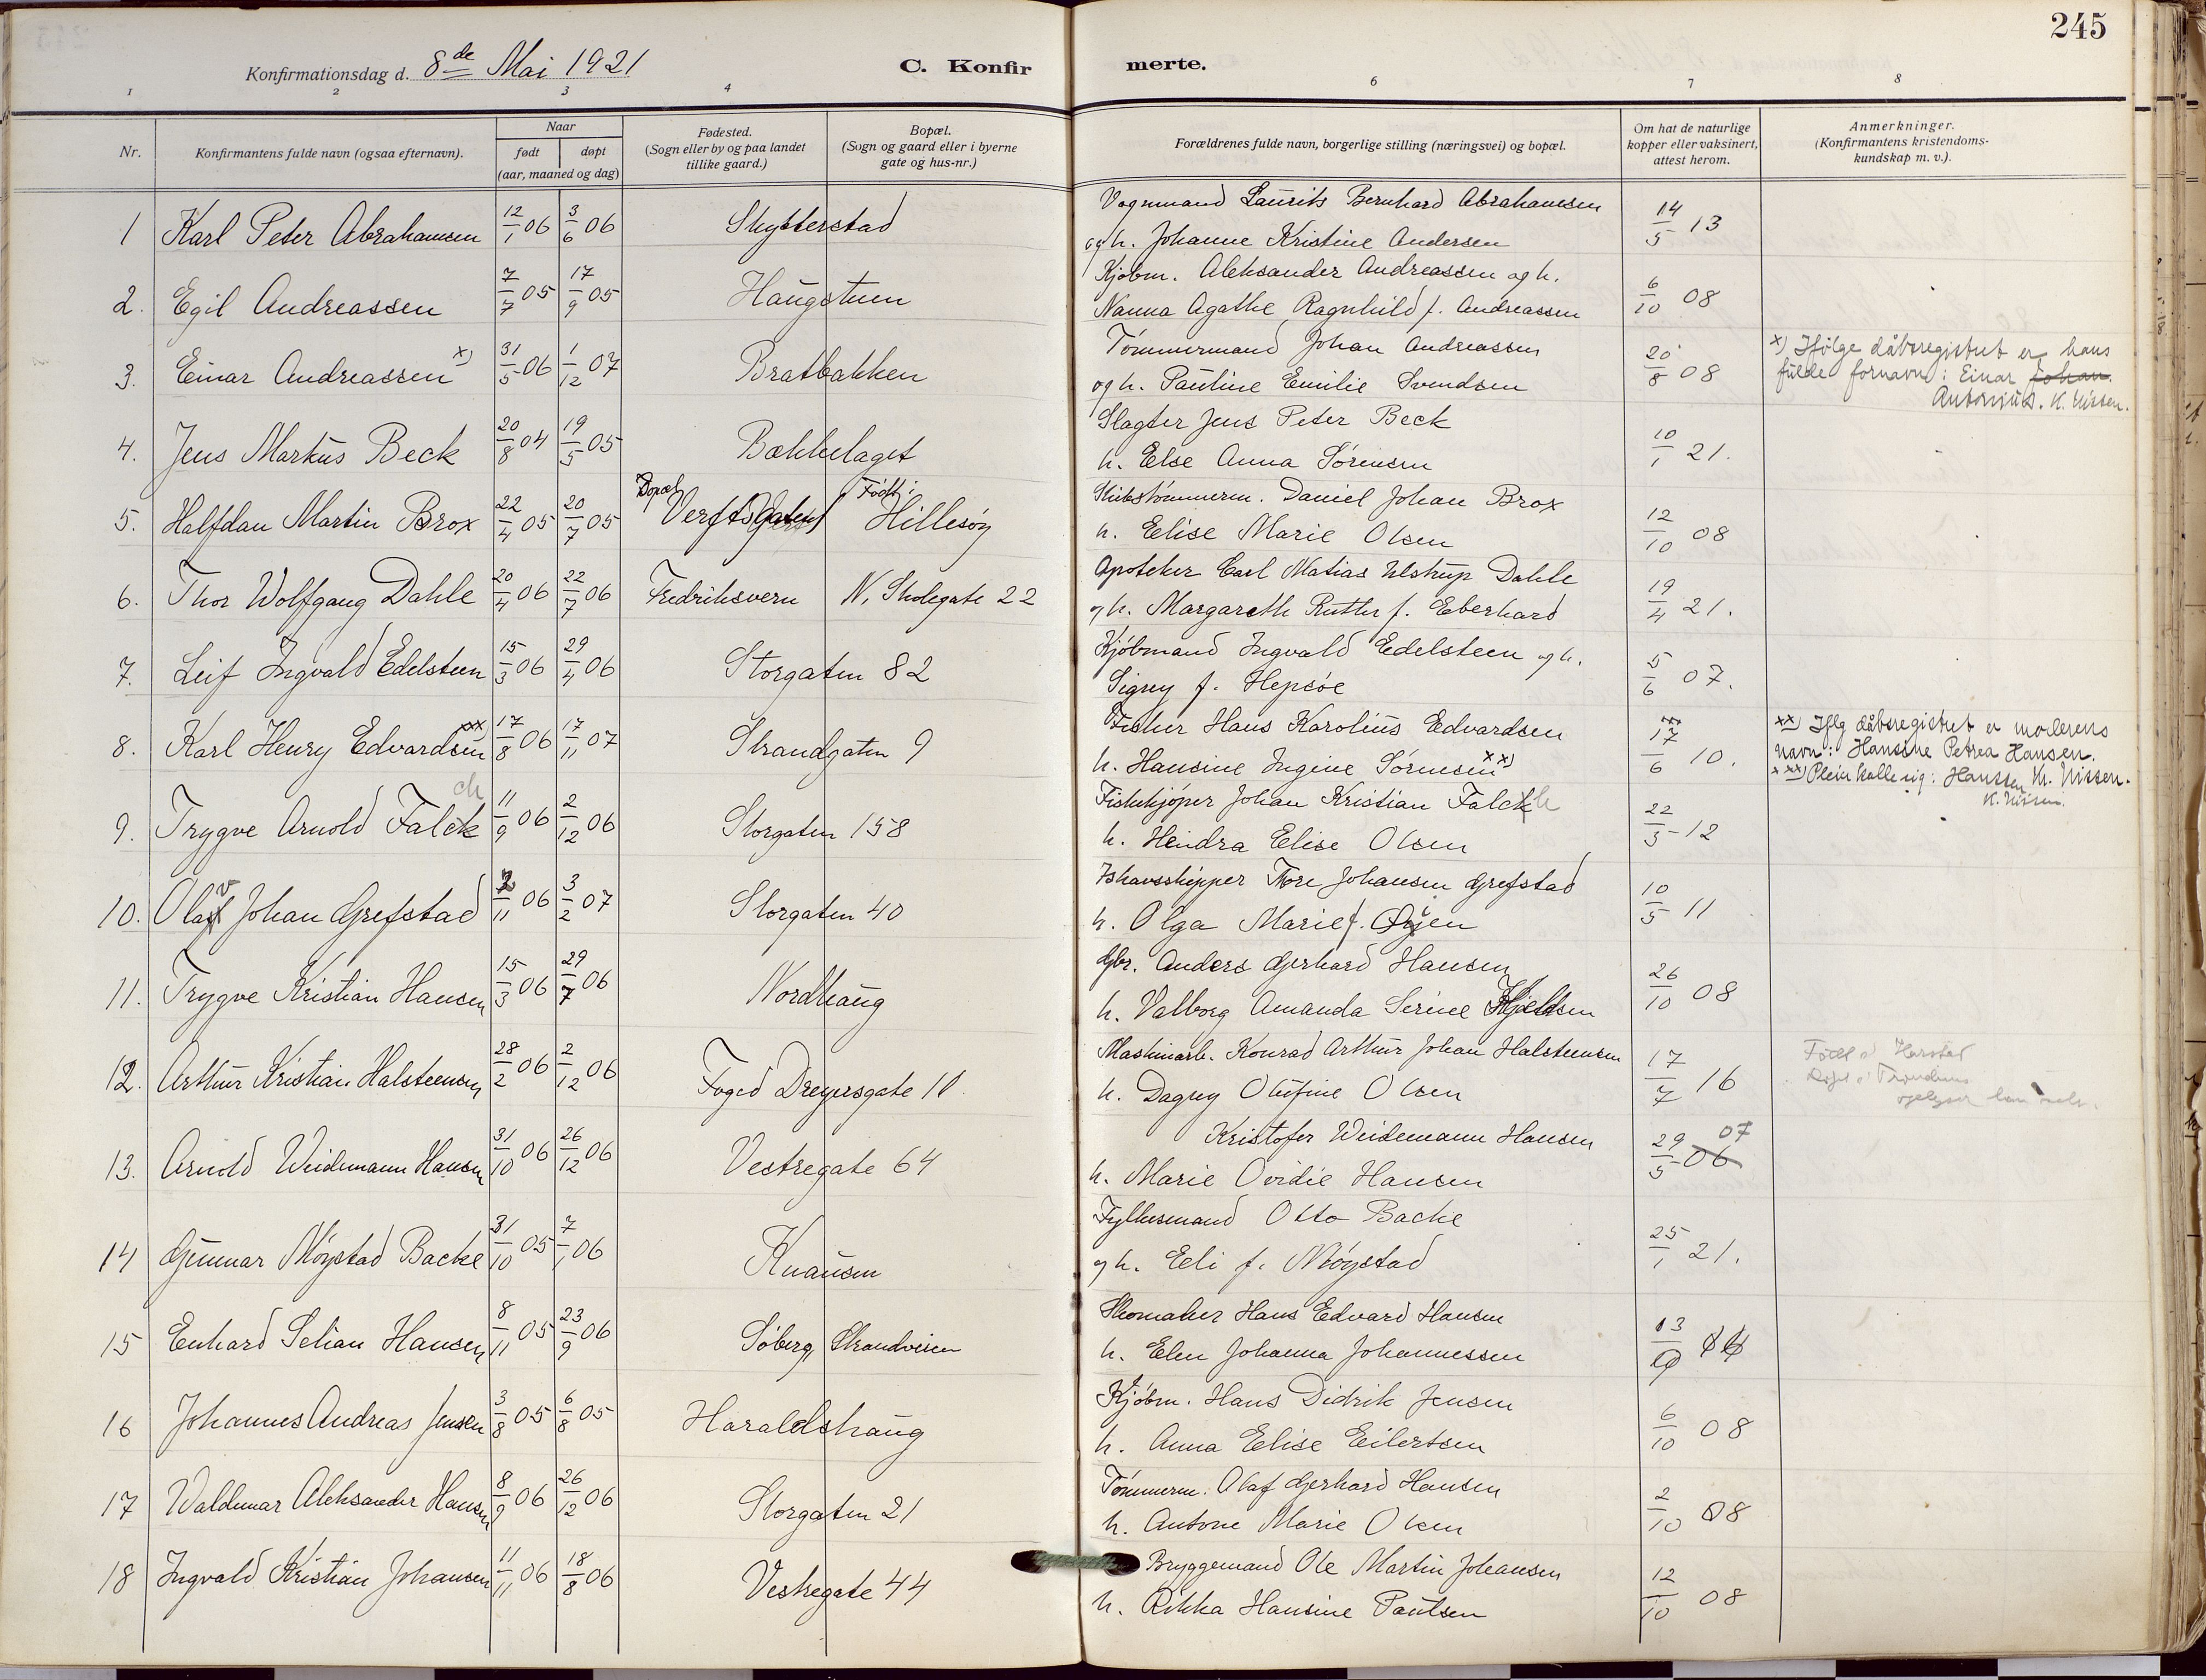 245
Konfirmationsdag d. 8de Mai 1921
C. Konfir
merte.
1 2 3 4 6 7 8
Nr.
Konfirmantens fulde navn (ogsaa efternavn).
Naar
født døpt
(aar, maaned og dag)
Fødested.
(Sogn eller by og paa landet
tillike gaard.)
Bopæl.
(Sogn og gaard eller i byerne
gate og hus-nr.)
Forældrenes fulde navn, borgerlige stilling (næringsvei) og bopæl.
Om hat de naturlige
kopper eller vaksinert,
attest herom.
Anmerkninger.
(Konfirmantens kristendoms-
kundskap m. v.).
1 Karl Peter Abrahamsen 12/1 06 3/6 06 Skytterstad
Vognmand Laurits Bernhard Abrahamsen
og h. Johanne Kristine Andersen
14/5 13
2. Egil Andreassen 7/7 05 17/9 05 Haugstuen
Kjøbm. Aleksander Andreassen og h.
Nanna Agathe Ragnhild f. Andreassen
6/10 08
3. Einar Andreassen x) 31/5 06 1/12 07 Bratbakken
Tømmermand Johan Andreassen
og h. Pauline Emilie Svendsen
20/8 08
x) Ifølge dåbsregistret er hans
fulde fornavn: Einar Johan
Antonius. K. Nissen.
4. Jens Markus Beck 20/8 04 19/5 05 Bækkelaget
Slagter Jens Peter Beck
h. Else Anna Sørensen
10/1 21.
5. Halfdan Martin Brox 22/4 05 20/7 05 Bopæl Verftsgaten Født: Hillesøy
Skibstømmerm. Daniel Johan Brox
h. Elise Marie Olsen
12/10 08
6. Thor Wolfgang Dahle 20/4 06 22/7 06 Fredriksvern N. Skolegate 22
Apoteker Carl Matias Ulstrup Dahle
og h. Margareth Ruth f. Eberhard
19/4 21.
7. Leif Ingvald Edelsteen 15/3 06 29/4 06 Storgaten 82
Kjøbmand Ingvald Edelsteen og h.
Signy f. Hepsøe
5/6 07.
8. Karl Henry Edvardsen xxx 17/8 06 17/11 07 Strandgaten 9
Fisker Hans Karolius Edvardsen
h. Hansine Ingine Sørensen xx)
17/6 10.
xx) Iflg dåbsregistret er moderens
navn: Hansine Petrea Hansen.
K. Nissen.
K. Nissen.
9. Trygve Arnold Falck ch 11/9 06 2/12 06 Storgaten 158
Fiskekjøper Johan Kristian Falck
h. Hendra Elise Olsen
22/5 12
10. Olav Johan Grefstad 2/11 06 3/2 07 Storgaten 40
Ishavsskipper Tore Johansen Grefstad
h. Olga Marie f. Øijen
10/5 11
11. Trygve Kristian Hansen 15/3 06 29/7 06 Nordhaug
Gbr. Anders Gerhard Hansen
h. Valborg Amanda Serine Kjeldsen
26/10 08
12. Arthur Kristian Halsteensen 28/2 06 2/12 06 Foged Dreyersgate 10
Maskinarb. Konrad Arthur Johan Halsteensen
h. Dagny Olufine Olsen
17/7 16
Født i Harstad
13. Arnold Weidemann Hansen 31/10 06 26/12 06 Vestregate 64
Kristofer Weidemann Hansen
h. Marie Ovidie Hansen
29/5 06 07
14 Gunnar Møystad Backe 31/10 05 7/1 06 Knausen
Fylkesmand Otto Backe
og h. Eli f. Møystad
25/1 21.
15 Enhard Selian Hansen 8/11 05 23/9 06 Søberg, Strandveien
Skomaker Hans Edvard Hansen
h. Elen Johanna Johannessen
16 Johannes Andreas Jensen 3/8 05 6/8 05 Haraldshaug
Kjøbm. Hans Didrik Jensen
h. Anna Elise Eilertsen
6/10 08
17 Waldemar Aleksander Hansen 8/9 06 26/12 06 Storgaten 21
Tømmerm. Olaf Gerhard Hansen
h. Antone Marie Olsen
2/10 08
18 Ingvald Kristian Johansen 11/11 06 18/8 06 Vestregate 44
Bryggemand Ole Martin Johansen
h. Rikka Hansine Paulsen
12/10 08